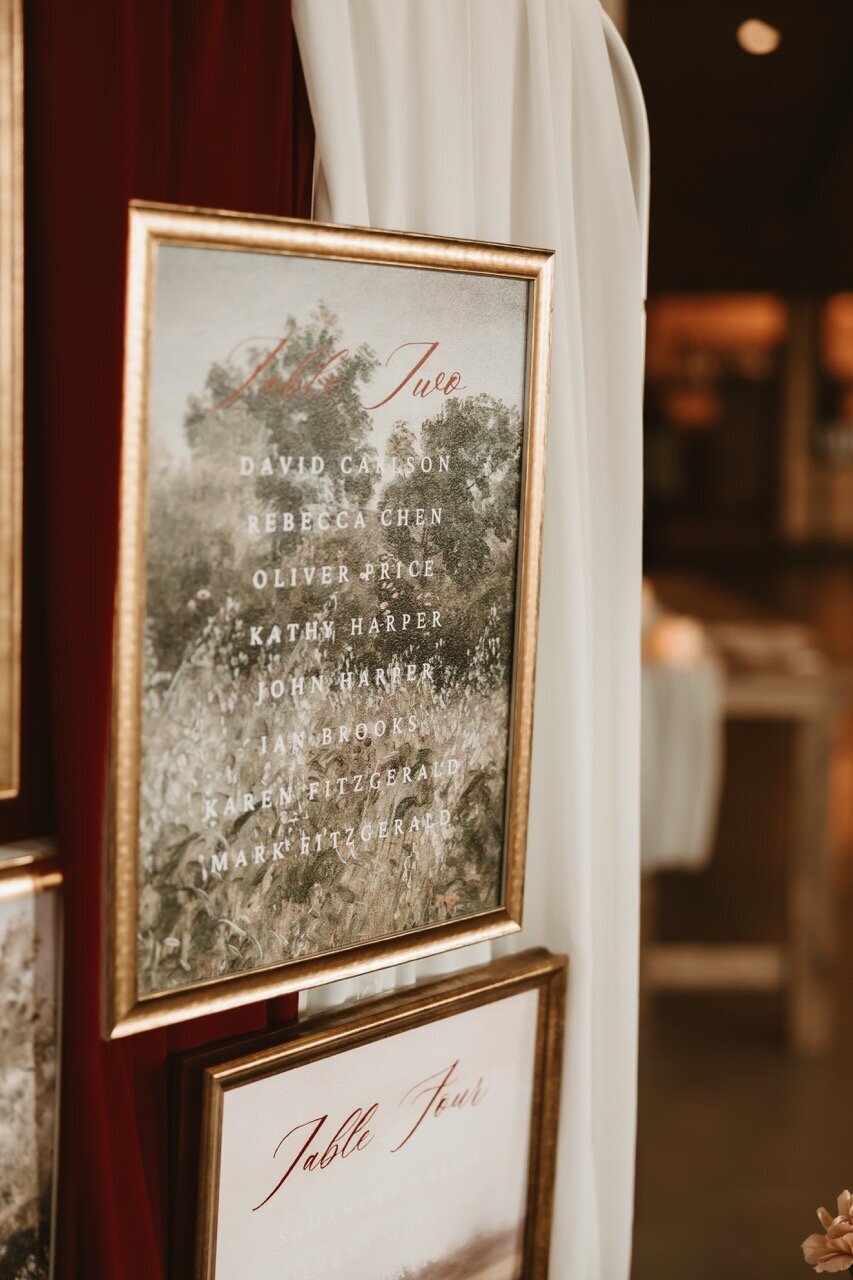 Table Two
DAVID CARLSON
REBECCA CHEN
OLIVER PRICE
KATHY HARPER
JOHN HARPER
IAN BROOKS
KAREN FITZGERALD
MARK FITZGERALD
Table Four
SAMANTHA